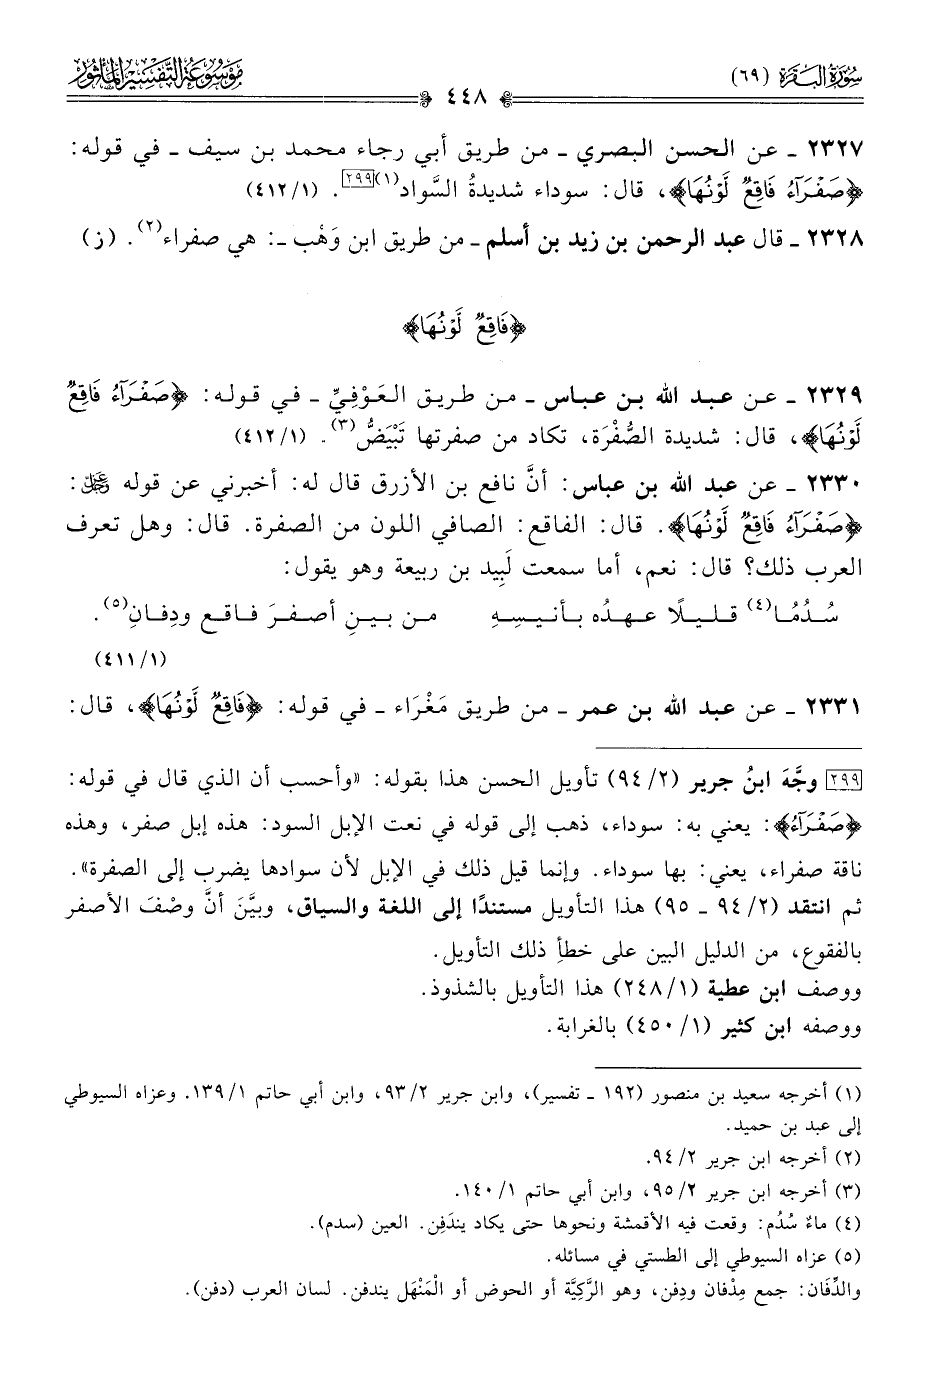 سُورَةُ البَقَرَة (٦٩)
٤٤٨
مَوْسُوعَةُ التَّفْسِيرِ المَأثُور
٢٣٢٧ ـ عن الحسن البصري ـ من طريق أبي رجاء محمد بن سيف ـ في قوله:
﴿صَفْرَآءُ فَاقِعٌ لَّوْنُهَا﴾، قال: سوداء شديدةُ السَّواد(١)[٢٩٩]. (٤١٢/١)
٢٣٢٨ ـ قال عبد الرحمن بن زيد بن أسلم ـ من طريق ابن وَهْب ـ: هي صفراء(٢). (ز)
﴿فَاقِعٌ لَّوْنُهَا﴾
٢٣٢٩ ـ عن عبد الله بن عباس ـ من طريق العَوْفِيِّ ـ في قوله: ﴿صَفْرَآءُ فَاقِعٌ
لَّوْنُهَا﴾، قال: شديدة الصُّفْرَة، تكاد من صفرتها تَبْيَضُّ(٣). (٤١٢/١)
٢٣٣٠ ـ عن عبد الله بن عباس: أنَّ نافع بن الأزرق قال له: أخبرني عن قوله ﷿:
﴿صَفْرَآءُ فَاقِعٌ لَّوْنُهَا﴾. قال: الفاقع: الصافي اللون من الصفرة. قال: وهل تعرف
العرب ذلك؟ قال: نعم، أما سمعت لَبِيد بن ربيعة وهو يقول:
سُدُمًا(٤) قليلًا عهدُه بأنيسِهِ من بينِ أصفرَ فاقع ودِفانِ(٥).
(٤١١/١)
٢٣٣١ ـ عن عبد الله بن عمر ـ من طريق مَغْرَاء ـ في قوله: ﴿فَاقِعٌ لَّوْنُهَا﴾، قال:
[٢٩٩] وجَّهَ ابنُ جرير (٩٤/٢) تأويل الحسن هذا بقوله: «وأحسب أن الذي قال في قوله:
﴿صَفْرَآءُ﴾: يعني به: سوداء، ذهب إلى قوله في نعت الإبل السود: هذه إبل صفر، وهذه
ناقة صفراء، يعني: بها سوداء. وإنما قيل ذلك في الإبل لأن سوادها يضرب إلى الصفرة».
ثم انتقد (٩٤/٢ ـ ٩٥) هذا التأويل مستندًا إلى اللغة والسياق، وبيَّنَ أنَّ وصْفَ الأصفر
بالفقوع، من الدليل البين على خطأِ ذلك التأويل.
ووصف ابن عطية (٢٤٨/١) هذا التأويل بالشذوذ.
ووصفه ابن كثير (٤٥٠/١) بالغرابة.
(١) أخرجه سعيد بن منصور (١٩٢ ـ تفسير)، وابن جرير ٩٣/٢، وابن أبي حاتم ١٣٩/١. وعزاه السيوطي
إلى عبد بن حميد.
(٢) أخرجه ابن جرير ٩٤/٢.
(٣) أخرجه ابن جرير ٩٥/٢، وابن أبي حاتم ١٤٠/١.
(٤) ماءٌ سُدُم: وقعت فيه الأقمشة ونحوها حتى يكاد يندَفِن. العين (سدم).
(٥) عزاه السيوطي إلى الطستي في مسائله.
والدِّفَان: جمع مِدْفان ودِفن، وهو الرَّكِيَّة أو الحوض أو الْمَنْهَل يندفن. لسان العرب (دفن).